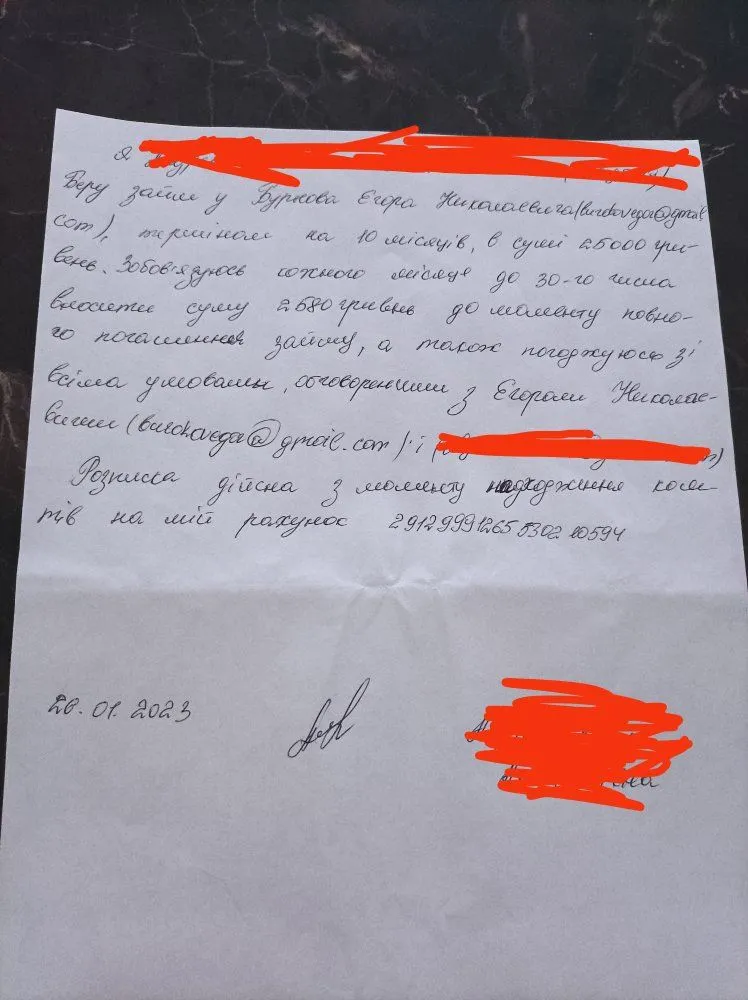 Я
Беру займ у Буркова Єгора Николаевича(burchavega@gmail.
com), терміном на 10 місяців, в сумі 25000 гри-
вень. Зобов'язуюсь кожного місяця до 30-го числа
вносити суму 2580 гривень до моменту повно-
го погашення займу, а також погоджуюсь зі
всіма умовами, обговореними з Єгором Николае-
вичем (@gmail.com) і (
Розписка дійсна з моменту надходження кош-
тів на мій рахунок
01.2023